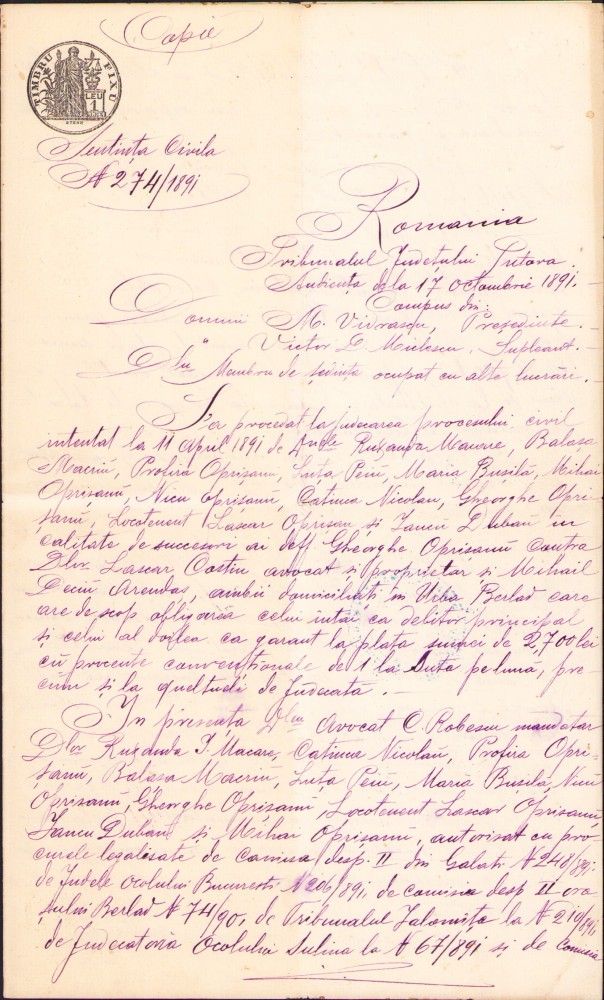 Copie
TIMBRU FIXU
LEU
1
Sentința Civila
N 274/1891
Romania
Tribunalul Județului Tutova
Audiența de la 17 Octombrie 1891. —
Compus din:
Domnii M. Vidrascu, Președinte. —
" Victor D. Miclescu, Supleant. —
Dlu Membru de ședința ocupat cu alte lucrări. —
S'a procedat la judecarea procesului civil
intentat la 11 April 1891 de Dnele Ruxanda Macare, Balasa
Macriu, Profira Oprisanu, Luta Peiu, Maria Busilă, Mihai
Oprisanŭ, Nicu Oprisanŭ, Catinca Nicolau, Gheorghe Opri-
șanŭ, Locotenent Lascar Oprisan și Iancu Dubău in
calitate de succesori ai deff Gheorghe Oprisanŭ contra
Dlor Lascar Costin avocat și proprietar și Mihail
Deciu Arendas, ambii domiciliati în Urbea Berlad care
are de scop obligarea celui intăi ca debitor principal
și celui al doilea ca garant la plata sumei de 2,700 lei
cu procente conventionale de 1 la Suta pe lună, pre-
cum și la cheltueli de Judecata. —
In presența Dlui Avocat C. Robescu mandatar
Dlor Ruxanda I. Macare, Catinca Nicolaŭ, Profira Opri-
șanŭ, Balasa Macriŭ, Luta Peiŭ, Maria Busilă, Nicu
Oprisanŭ, Gheorghe Oprisanŭ, Locotenent Lascar Oprisanŭ
Iancu Dubaŭ și Mihai Oprișanŭ, autorisat cu pro-
curele legalisate de Comisia desp. II din Galati N 248/891.
de Judele Ocolului Bucuresti N 206/891, de comisia desp II ora
șului Berlad N 74/90, de Tribunalul Ialomița la N 210/891
de Judecatoria Ocolului Sulina la N 67/891 și de Comisia